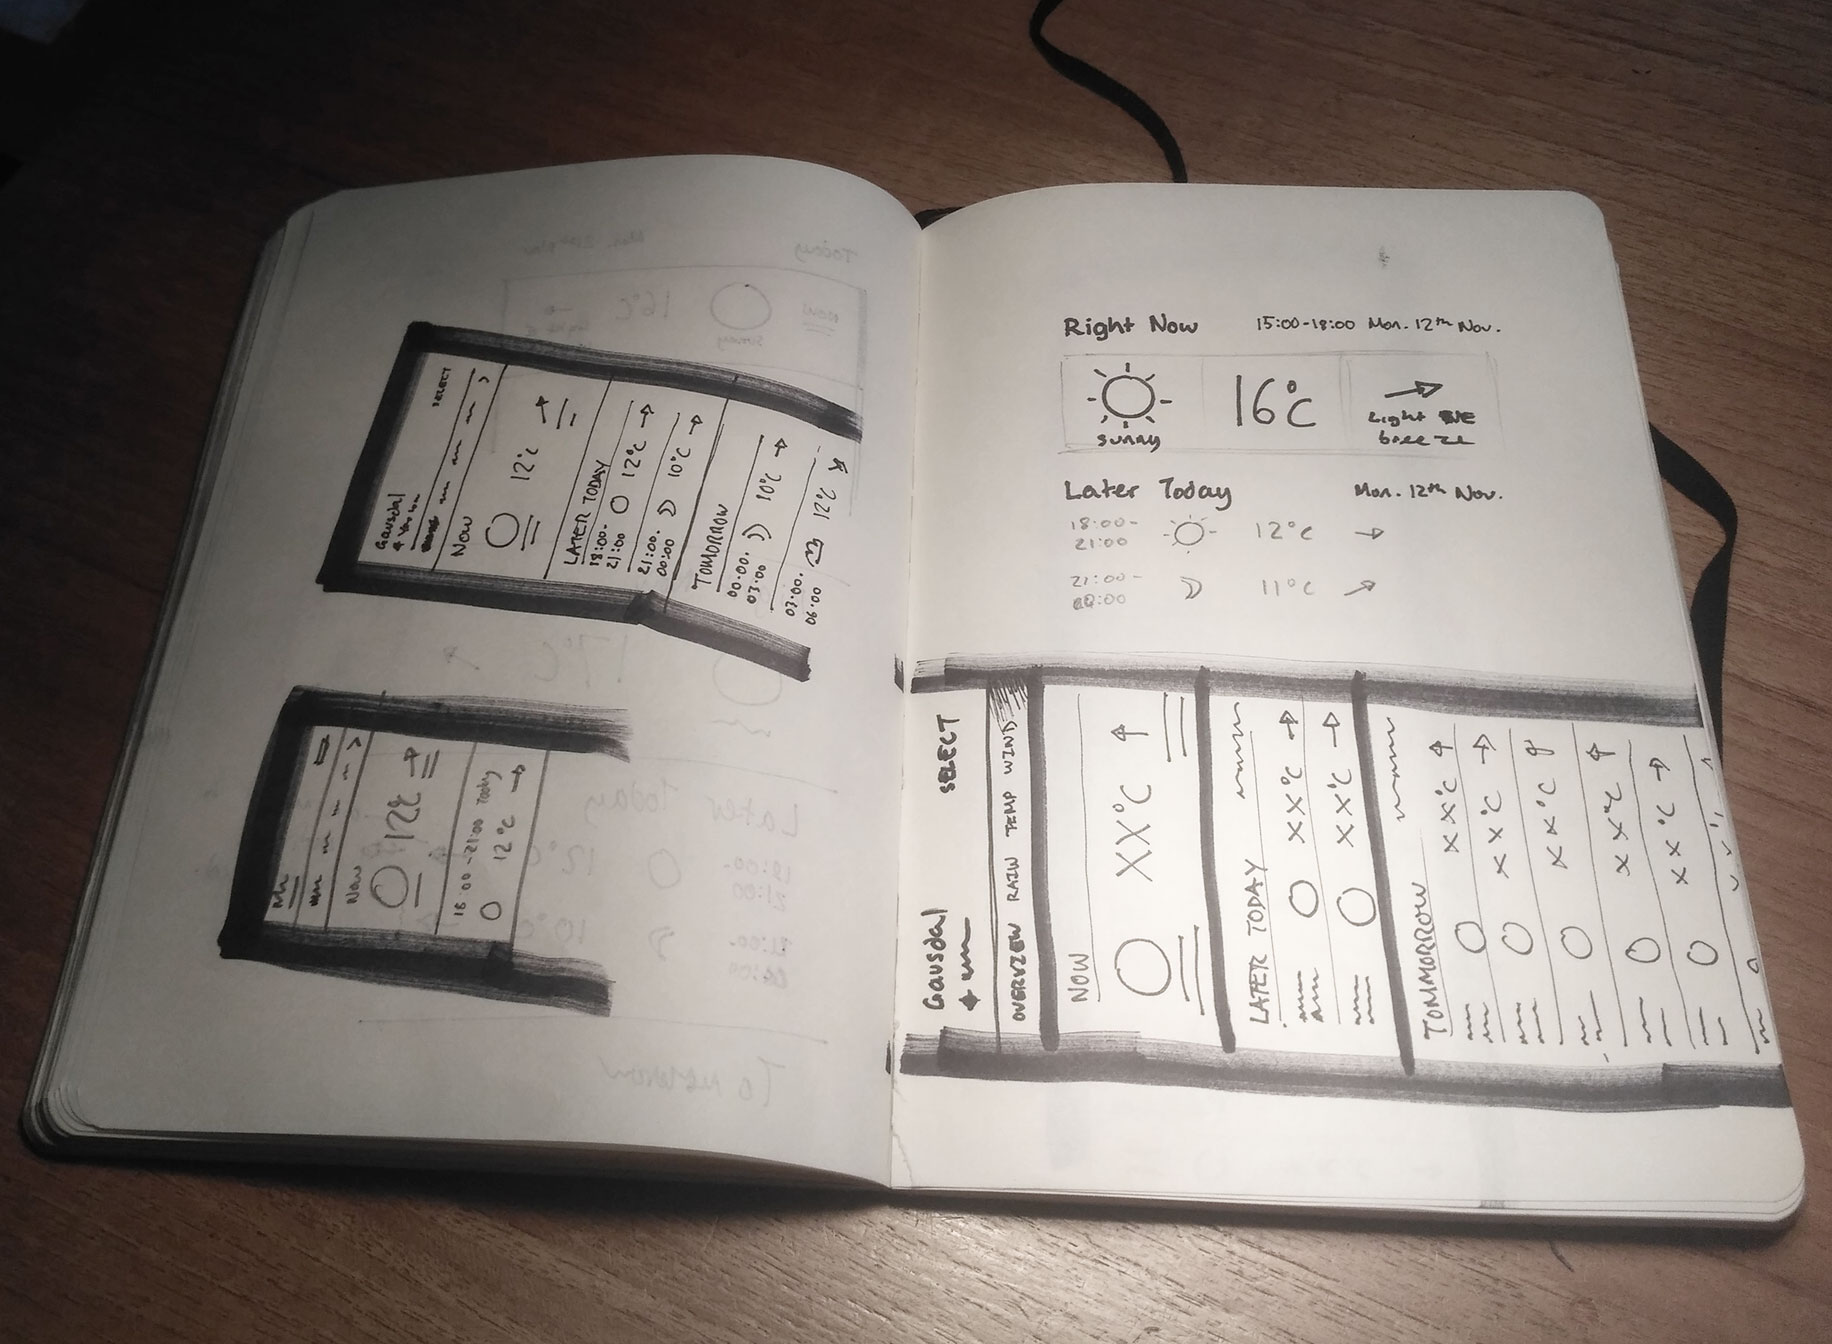 Gausdal
SELECT
NOW
12°C
LATER TODAY
18:00-
21:00
12°C
21:00-
00:00
10°C
TOMORROW
00:00-
03:00
10°C
03:00-
06:00
12°C
NOW
12°C
18:00-21:00 Today
12°C
Right Now 15:00-18:00 Mon. 12th Nov.
16°C
sunny
Light
breeze
Later Today Mon. 12th Nov.
18:00-
21:00
12°C
21:00-
00:00
11°C
Gausdal SELECT
OVERVIEW RAIN TEMP WIND
NOW
XX°C
LATER TODAY
XX°C
XX°C
TOMMORROW
XX°C
XX°C
XX°C
XX°C
XX°C